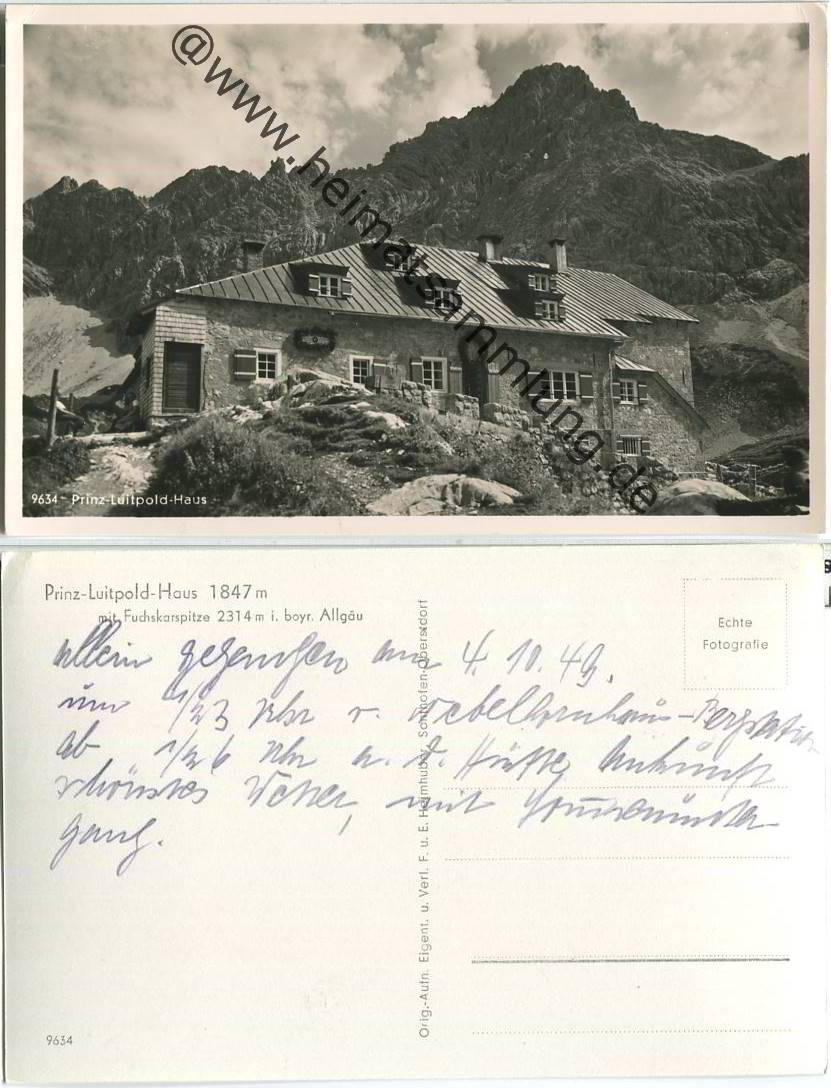 @www.heimatsammlung.de
9634 Prinz-Luitpold-Haus
Prinz-Luitpold-Haus 1847m
mit Fuchskarspitze 2314m i. bayr. Allgäu
Echte
Fotografie
allein gegangen am 4.10.49.
um 1/2 3 Uhr v. Nebelhornhaus-Bergstation
ab 1/2 6 Uhr a. d. Hütte Ankunft
schönstes Wetter, mit Sonnenunter
gang.
Orig.-Aufn. Eigent. u. Verl. F. u. E. Heimhuber, Sonthofen-Oberstdorf
9634